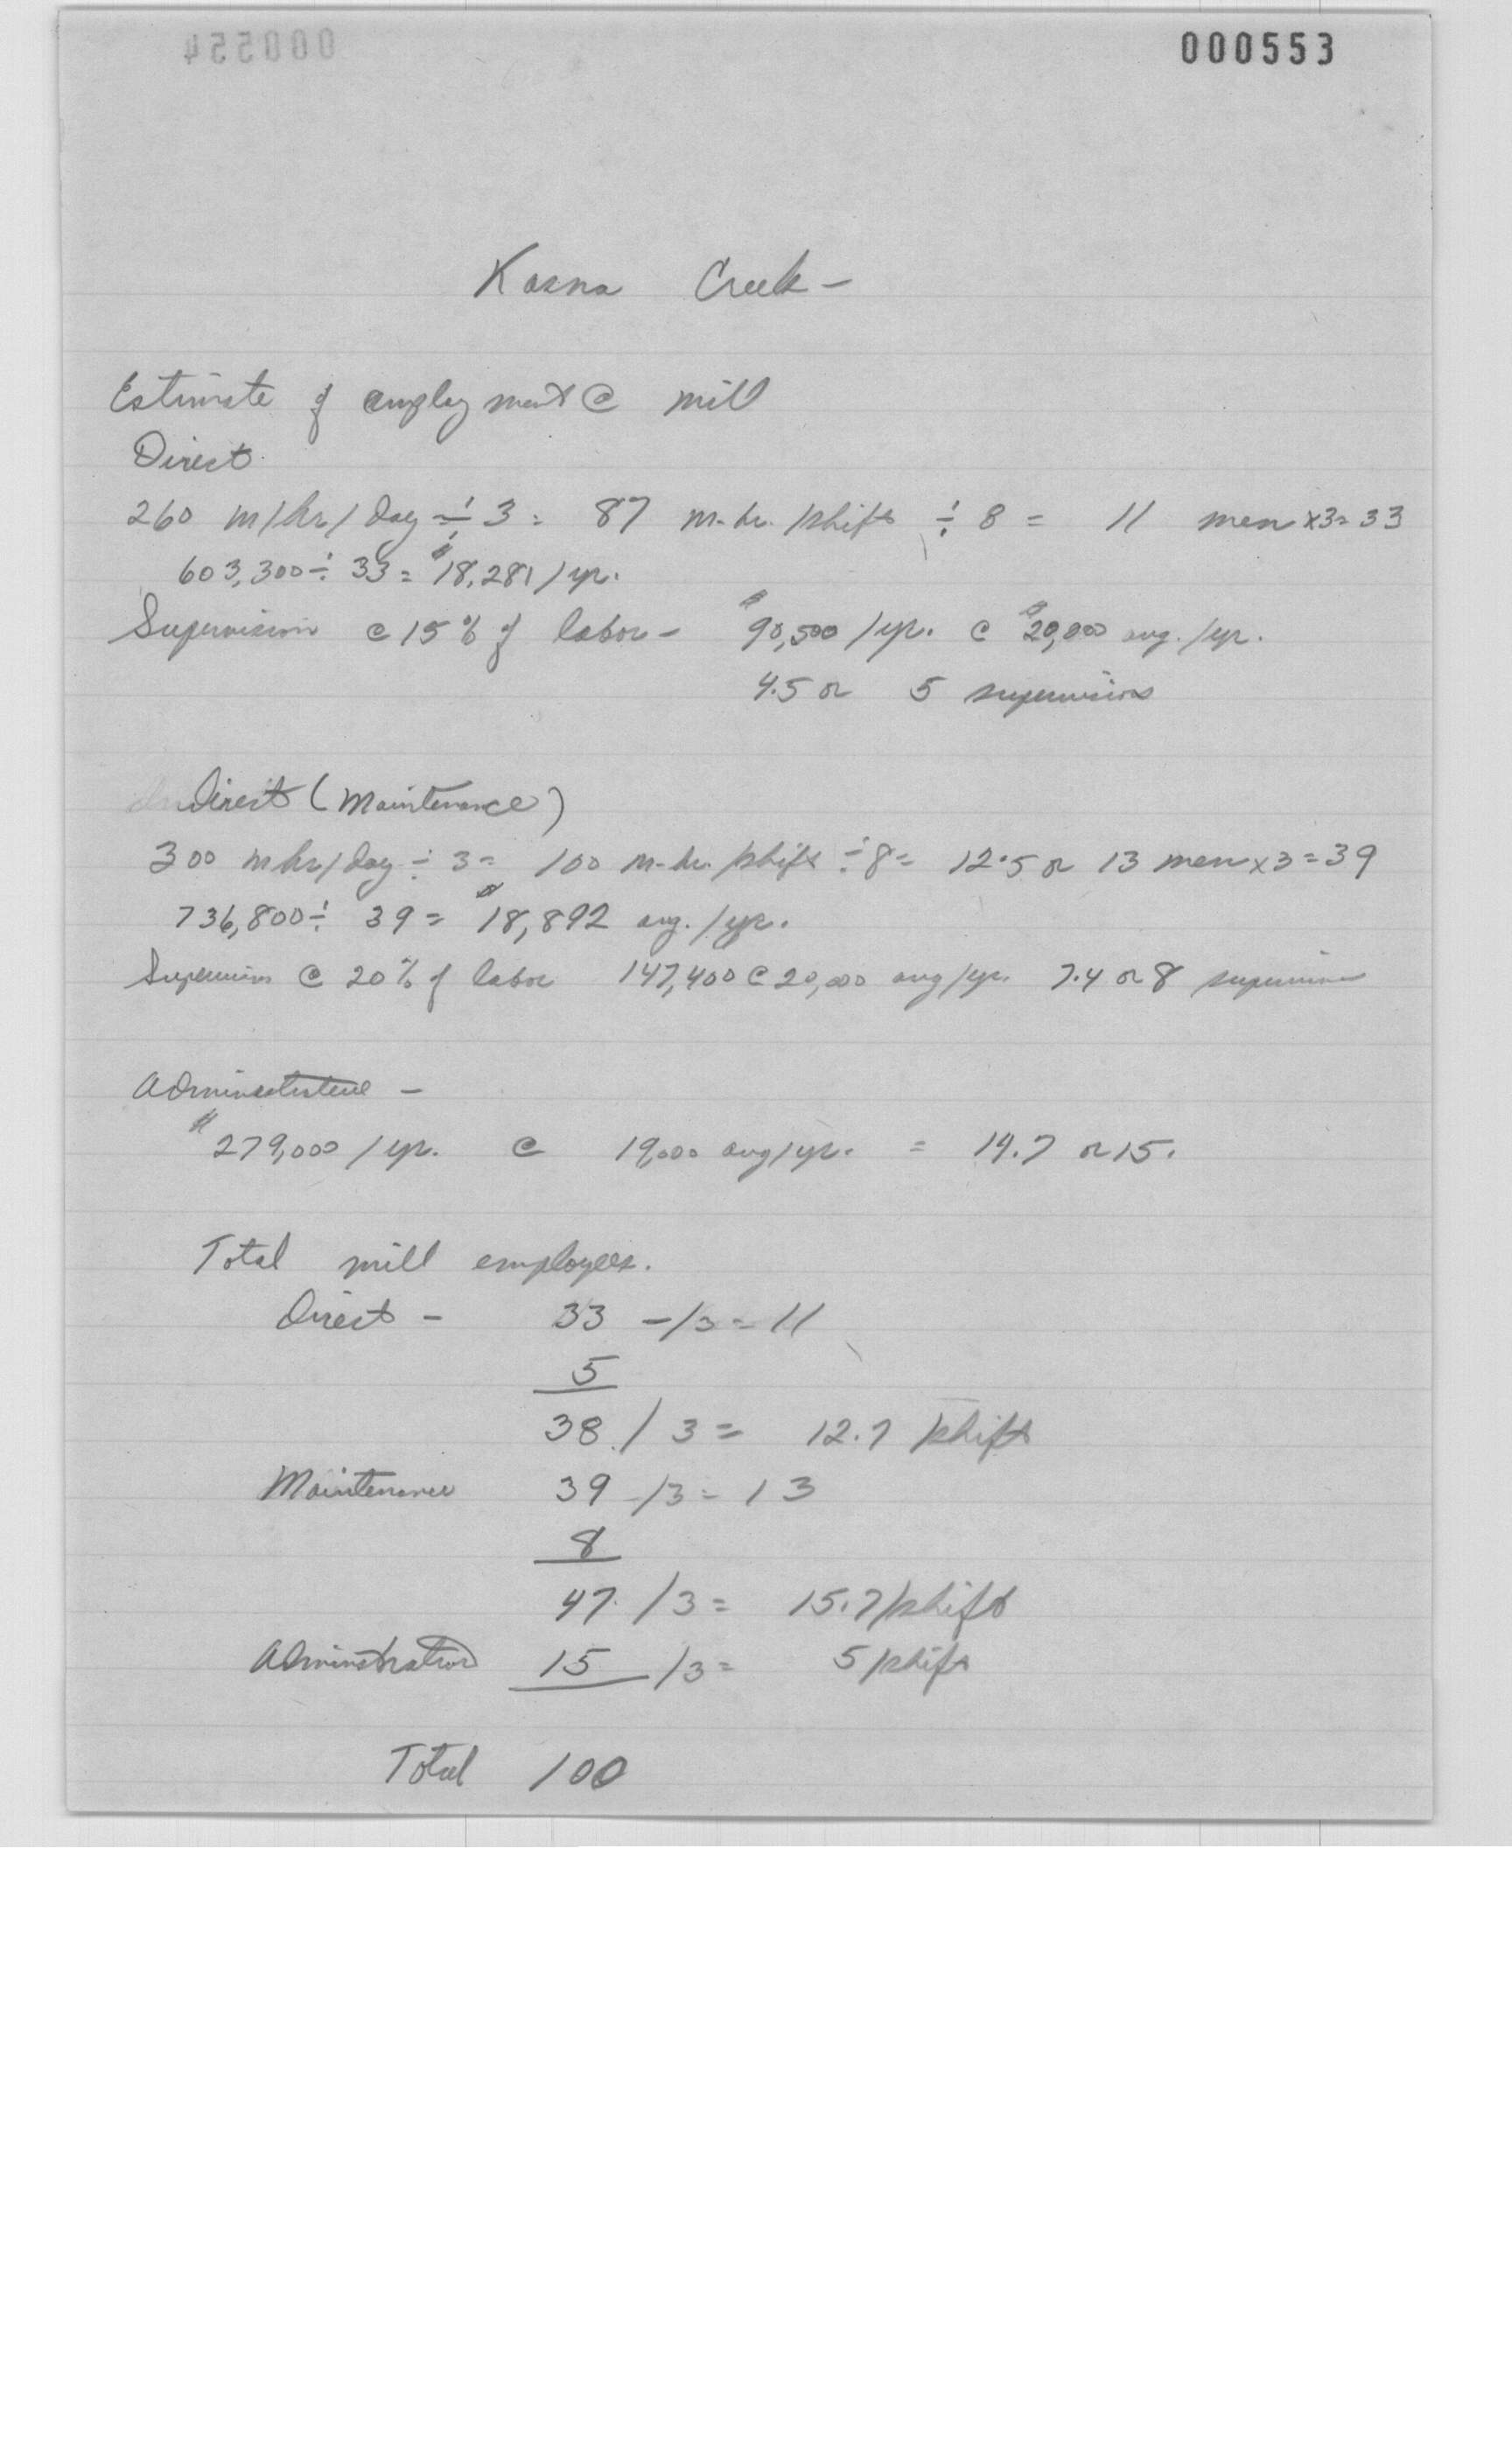 000553
Kasna Creek -
Estimate of employment @ mill
Direct
260 m/hr/day ÷ 3 = 87 m-hr./shift ÷ 8 = 11 men x3=33
603,300 ÷ 33 = $18,281/yr.
Supervision @ 15% of labor - $90,500/yr. @ $20,000 avg./yr.
4.5 or 5 supervisors
Indirect (Maintenance)
300 mhr/day ÷ 3 = 100 m-hr./shift ÷ 8 = 12.5 or 13 men x3=39
736,800 ÷ 39 = $18,892 avg./yr.
Supervision @ 20% of labor 147,400 @ 20,000 avg/yr. 7.4 or 8 supervisors
Administrative -
$279,000/yr. @ 19,000 avg/yr. = 14.7 or 15.
Total mill employees.
Direct - 33 -/3 = 11
5
38 / 3 = 12.7 /shift
Maintenance 39 -/3 = 13
8
47 /3 = 15.7/shift
Administration 15 /3 = 5/shift
Total 100